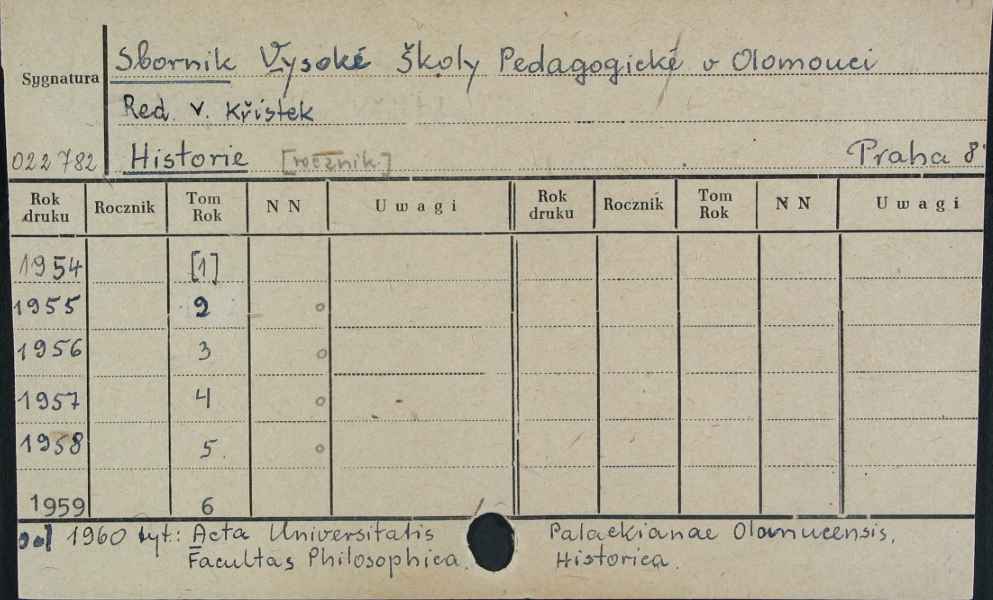 Sygnatura
Sbornik Vysoké Školy Pedagogické v Olomouci
Red. V. Křístek
022 782 Historie [rocznik] Praha 8°
Rok druku Rocznik Tom Rok N N Uwagi Rok druku Rocznik Tom Rok N N Uwagi
1954 [1]
1955 2 o
1956 3 o
1957 4 o
1958 5. o
1959 6
od 1960 tyt.: Acta Universitatis Palackianae Olomucensis,
Facultas Philosophica. Historica.